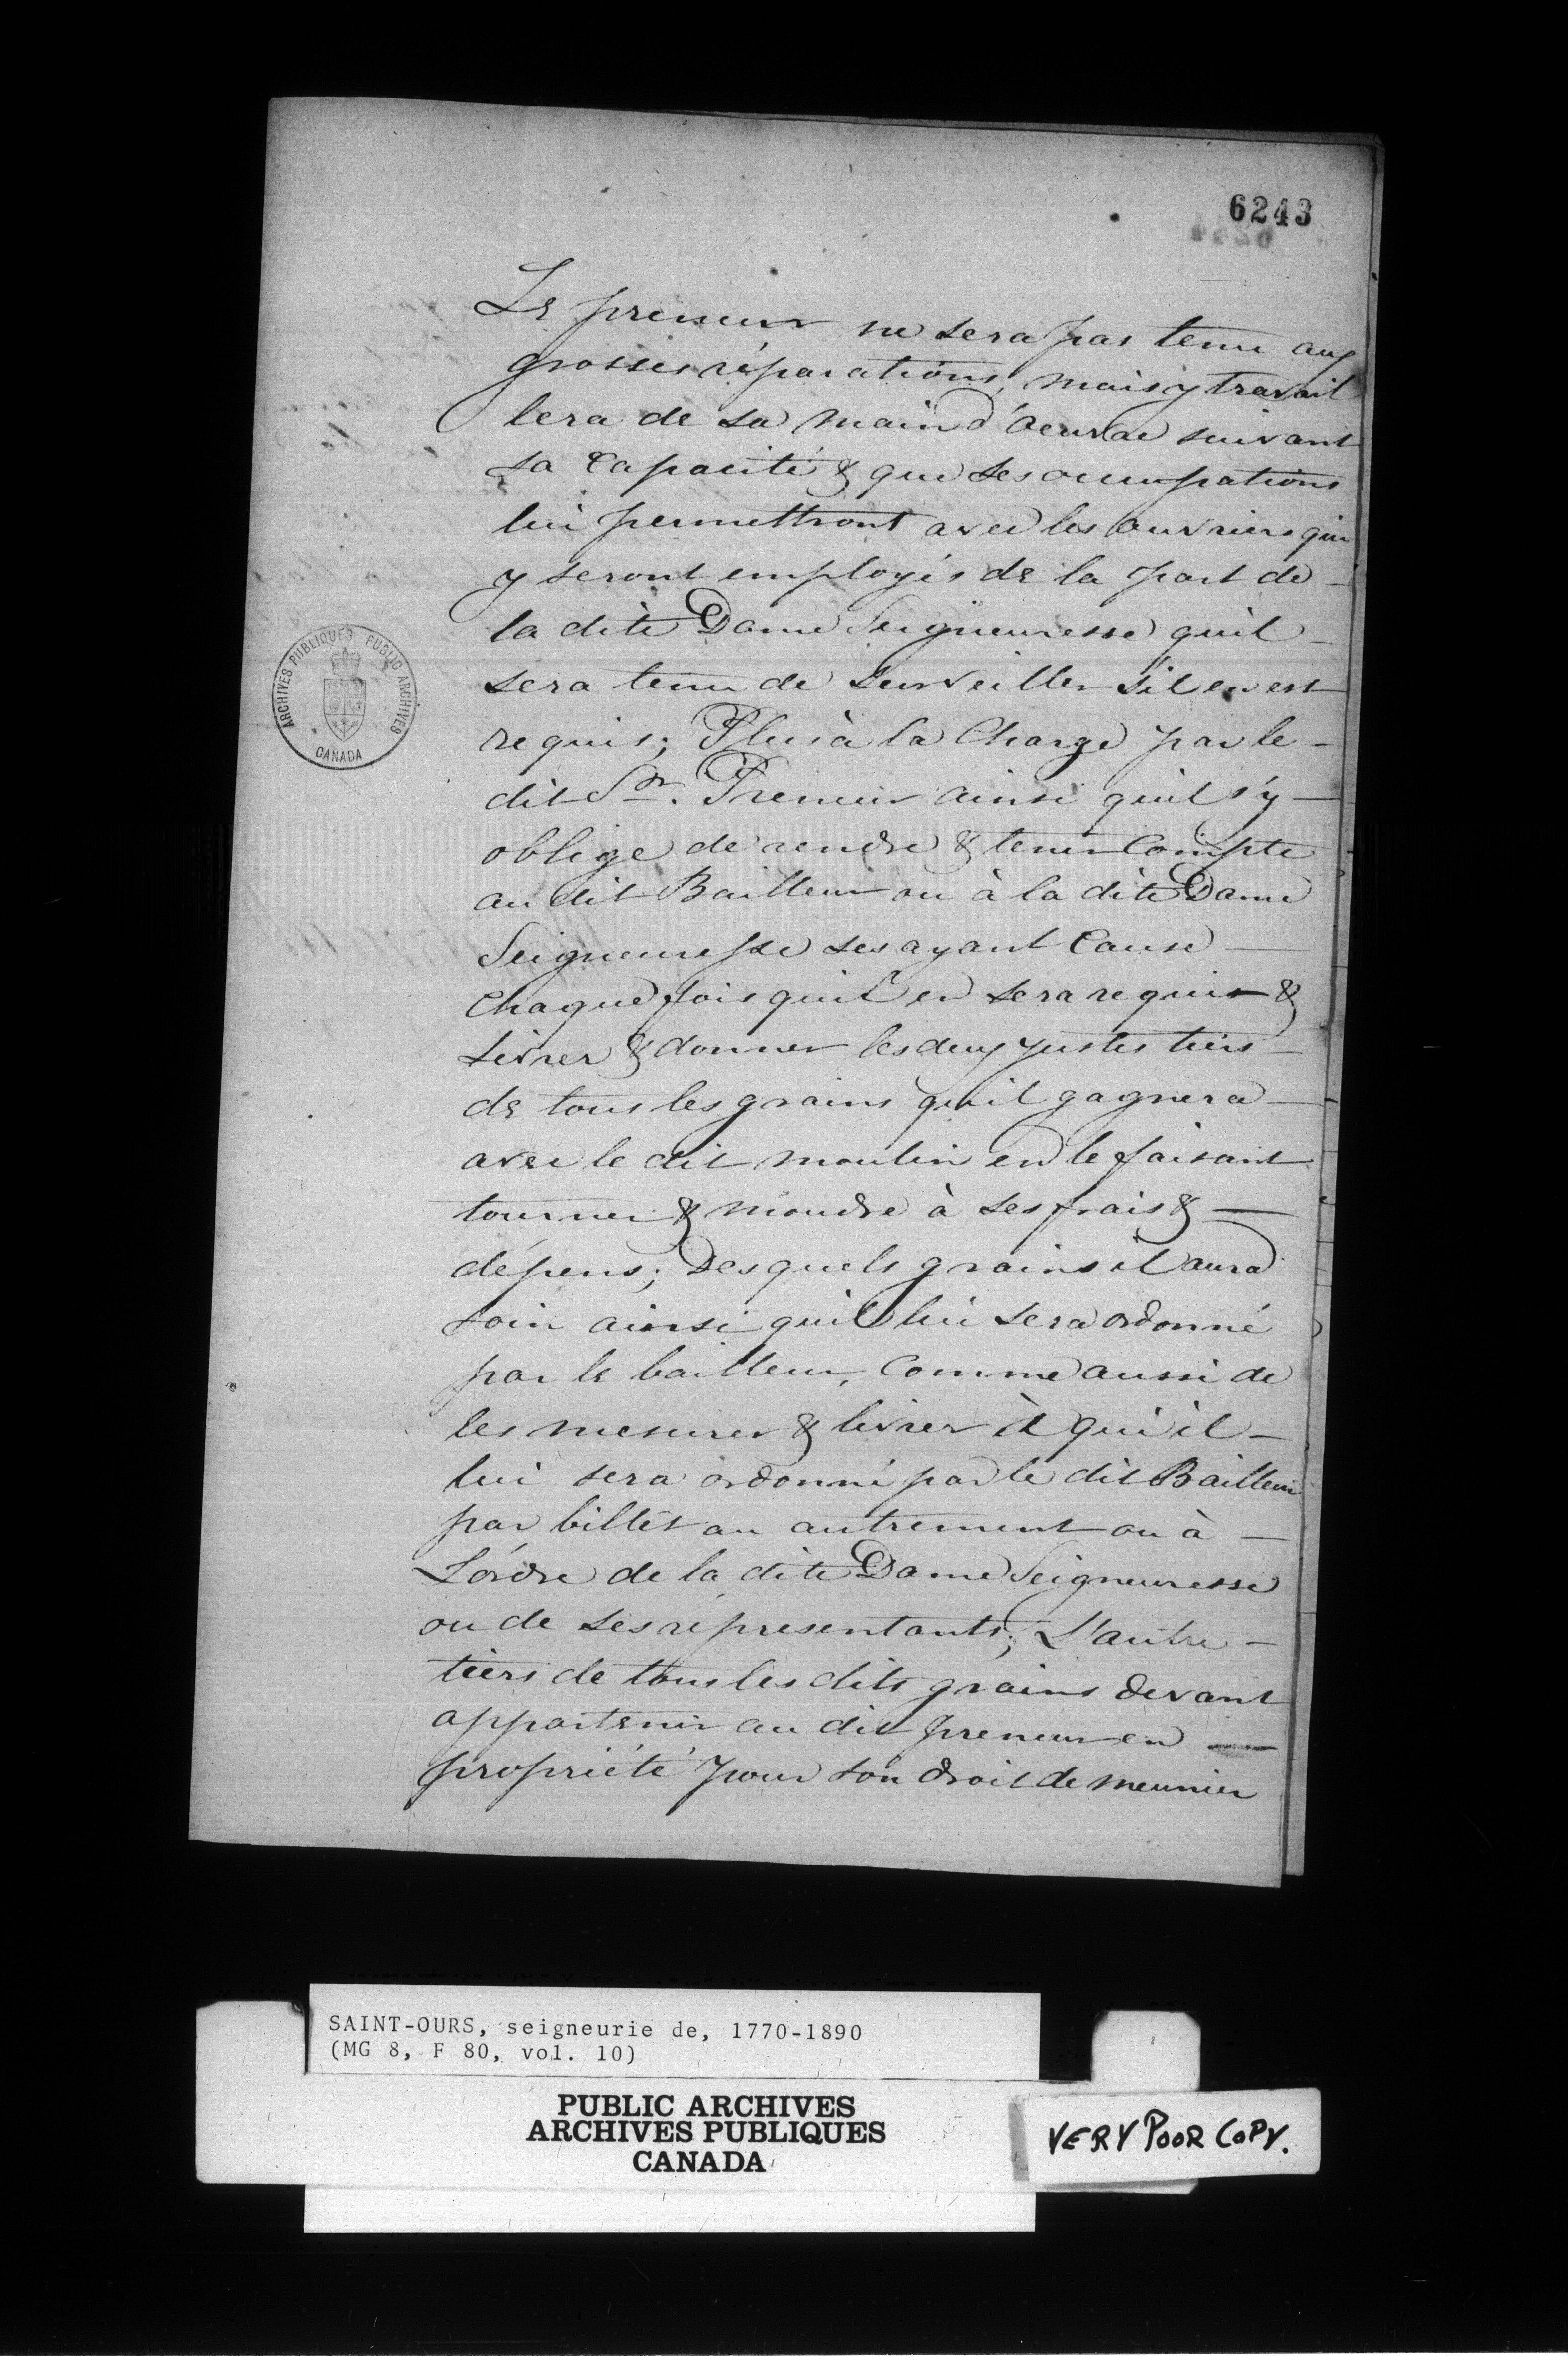 6243
Le preneur ne sera pas tenu aux
grosses réparations, mais y travail
lera de sa main d'oeuvre suivant
sa Capacité & que ses occupations
lui permettront avec les ouvriers qui
y seront employés de la part de -
la dite Dame Seigneuresse qu'il -
sera tenu de surveiller s'il en est
requis; Plus à la Charge par le -
dit Sr. Preneur ainsi qu'il s'y -
oblige de rendre & tenir Compte
au dit Bailleur ou à la dite Dame
Seigneuresse ses ayant Cause -
Chaque fois qu'il en sera requis &
Livrer & donner les deux justes tiers -
de tous les grains qu'il gagnera -
avec le dit moulin en le faisant
tourner & moudre à ses frais & -
dépens; Desquels grains il aura
soin ainsi qu'il lui sera ordonné
par le bailleur, Comme aussi de
les mesurer & livrer à qui il -
lui sera ordonné par le dit Bailleur
par billet ou autrement ou à -
L'ordre de la dite Dame Seigneuresse
ou de ses réprésentants; L'autre -
tiers de tous les dits grains devant
appartenir au dit preneur en -
propriété pour son droit de meunier
ARCHIVES PUBLIQUES PUBLIC ARCHIVES
CANADA
SAINT-OURS, seigneurie de, 1770-1890
(MG 8, F 80, vol. 10)
PUBLIC ARCHIVES
ARCHIVES PUBLIQUES
CANADA
VERY POOR COPY.